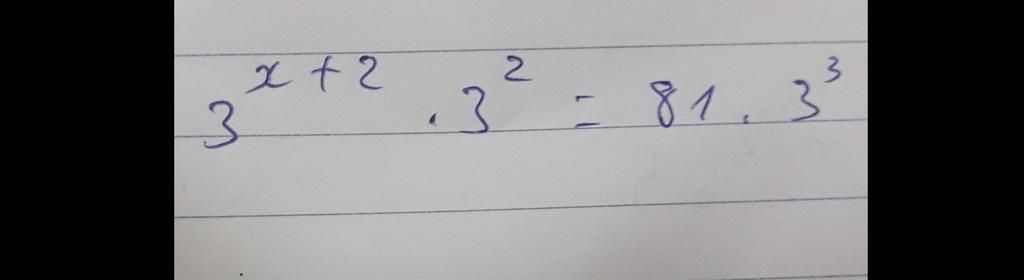 3^{x+2} . 3^2 = 81 . 3^3